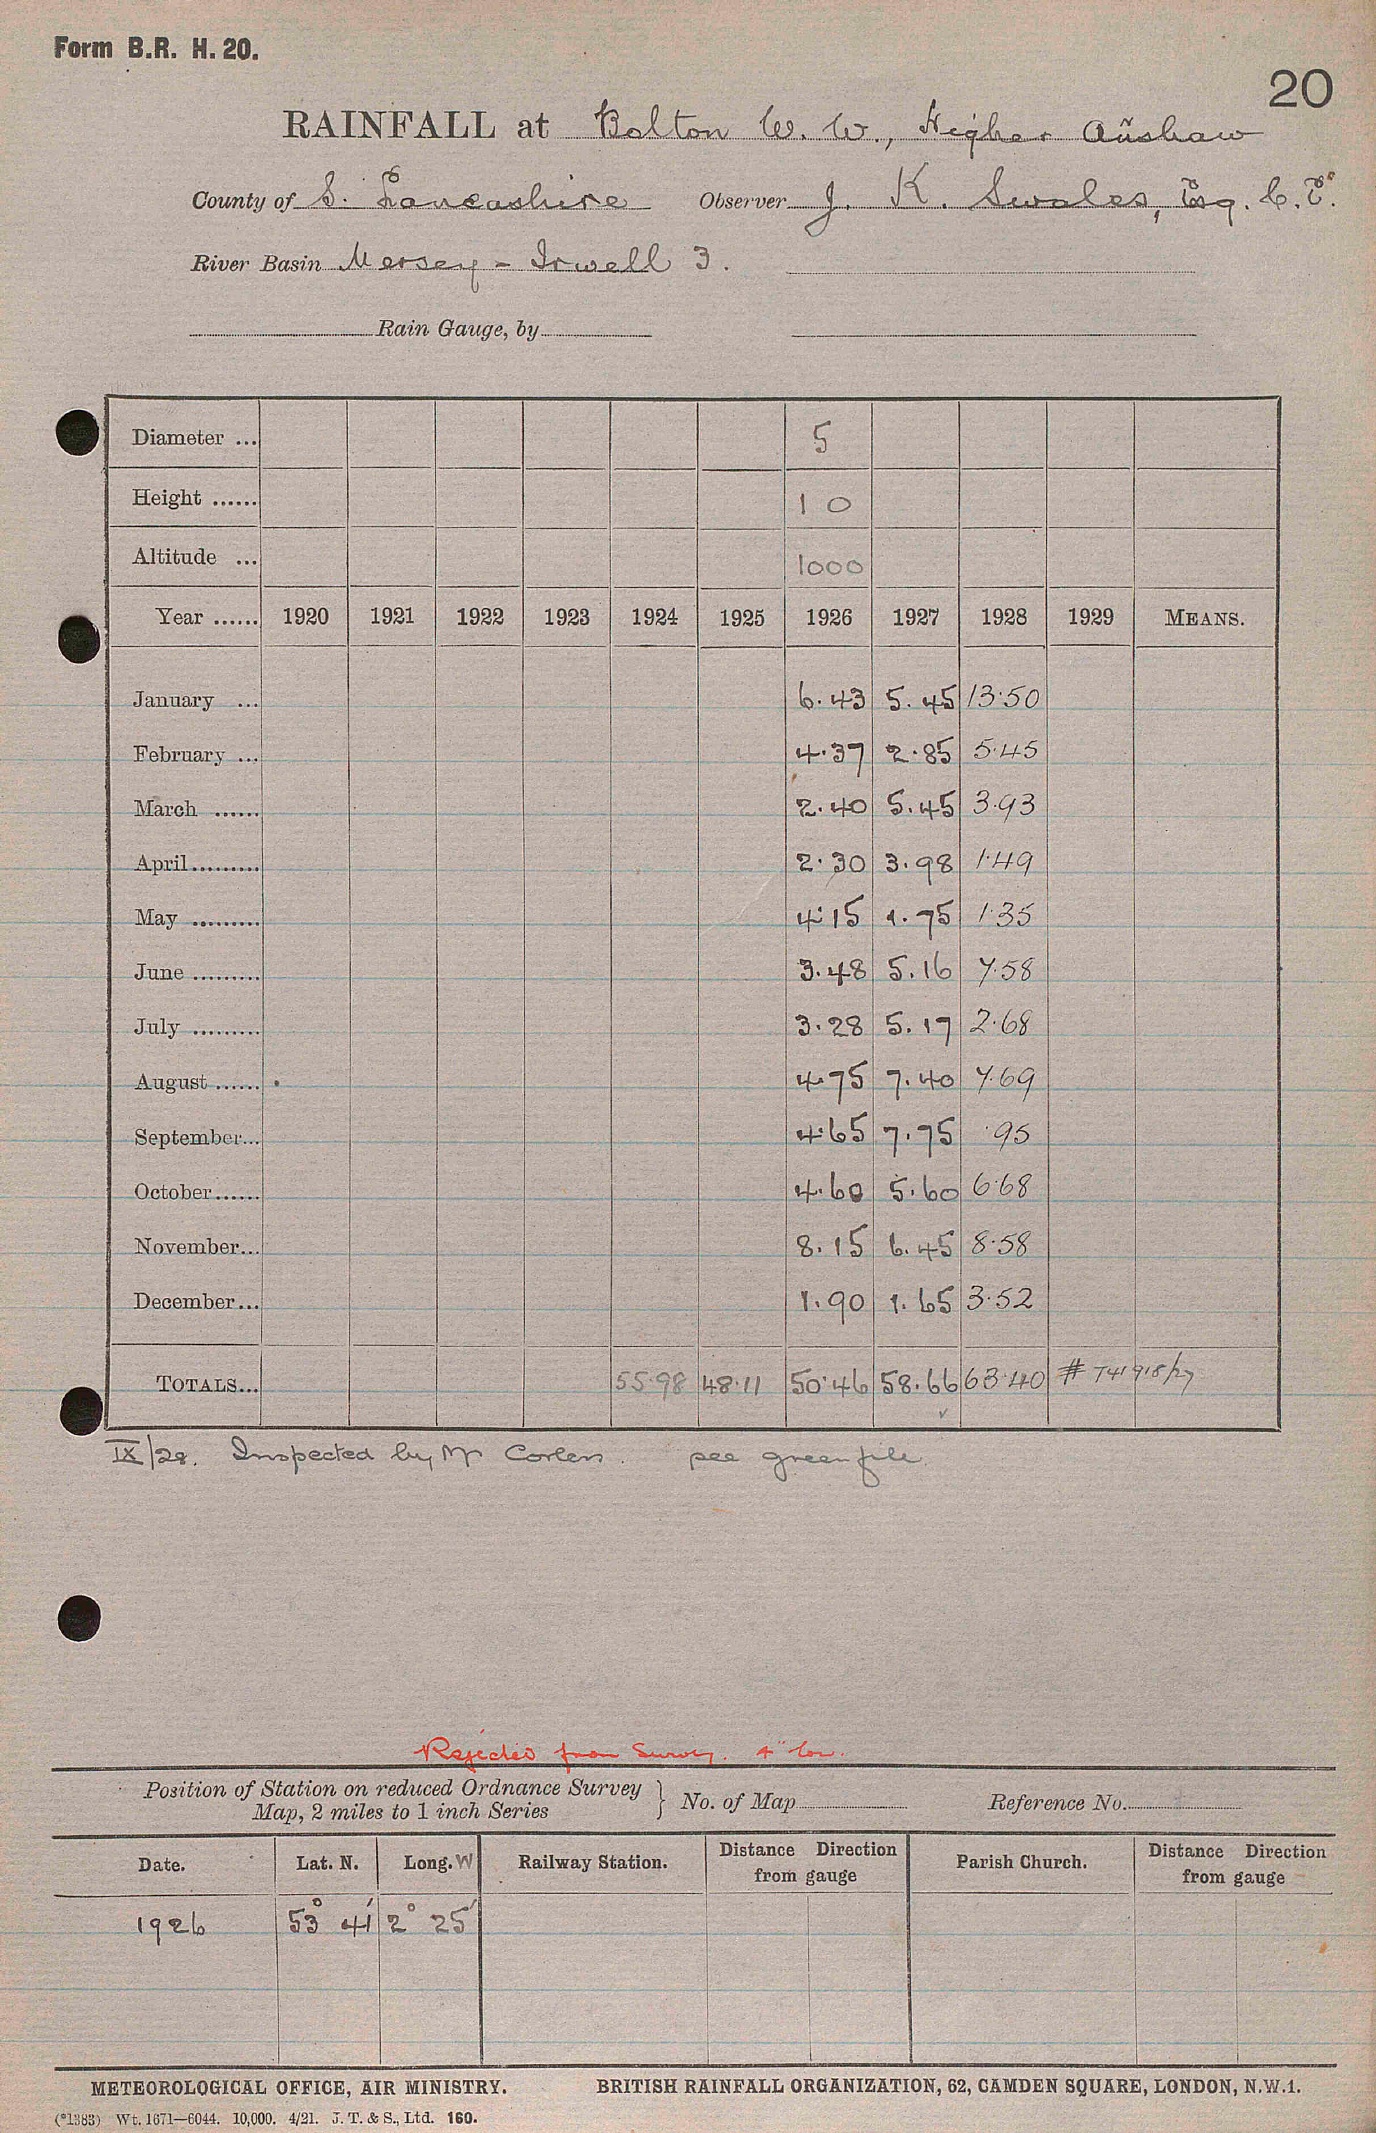 Form B.R. H. 20.
20
RAINFALL at Bolton W. W., Higher Aushaw
County of S. Lancashire Observer J. K. Swales, Esq. C.E.
River Basin Mersey - Irwell 3.
Rain Gauge, by
Diameter ... 5
Height ...... 10
Altitude ... 1000
Year ...... 1920 1921 1922 1923 1924 1925 1926 1927 1928 1929 MEANS.
January ... 6.43 5.45 13.50
February ... 4.37 2.85 5.45
March ...... 2.40 5.45 3.93
April......... 2.30 3.98 1.49
May ......... 4.15 1.75 1.35
June ......... 3.48 5.16 7.58
July ......... 3.28 5.17 2.68
August ...... 4.75 7.40 7.69
September... 4.65 7.75 .95
October...... 4.60 5.60 6.68
November... 8.15 6.45 8.58
December... 1.90 1.65 3.52
TOTALS... 55.98 48.11 50.46 58.66 63.40 # 741918/27
IX/28. Inspected by Mr see green file.
Rejected from Survey.
Position of Station on reduced Ordnance Survey
Map, 2 miles to 1 inch Series } No. of Map Reference No.
Date. Lat. N. Long. W Railway Station. Distance Direction from gauge Parish Church. Distance Direction from gauge
1926 53° 41' 2° 25'
METEOROLOGICAL OFFICE, AIR MINISTRY. BRITISH RAINFALL ORGANIZATION, 62, CAMDEN SQUARE, LONDON, N.W.1.
(*1383) Wt. 1671—6044. 10,000. 4/21. J. T. & S., Ltd. 160.